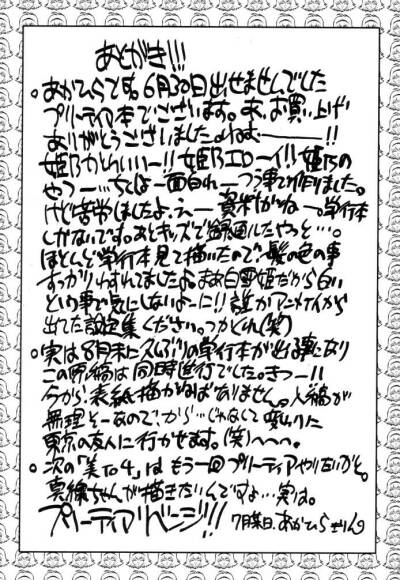 あとがき!!!
。あかひらです。6月30日出せませんでした
プリーティア本でございます。お買い上げ
ありがとうございました。ねぇ――!!
姫乃かわいいー!!姫乃エローイ!!姫乃の
やつー…ちとよー面白れーつう事で作りました。
けど苦労しましたよ、えー資料がねー。単行本
しかないです。あとキッズで録画したやつと…。
ほとんど単行本見て描いたので、髪の色の事
すっかりわすれてましたよ。まあ白雪姫だから白い
という事で気にしないよーに!!誰かアニメイトから
出てた設定集ください。つかくれ(笑)
。実は8月末に久しぶりの単行本が出る事になり
この原稿は同時進行でした。きつー!!
今から表紙描かねばありません。入稿が
無理そーなので、から…じゃなくて変わりに
東京の友人に行かせます。(笑)へへへ。
。次の「美to4」はもう一回プリーティアやりたいかと。
真綾ちゃんが描きたいんですよ…実は。
プリーティアリベンジ!!
7月某日、あかひらきりん。